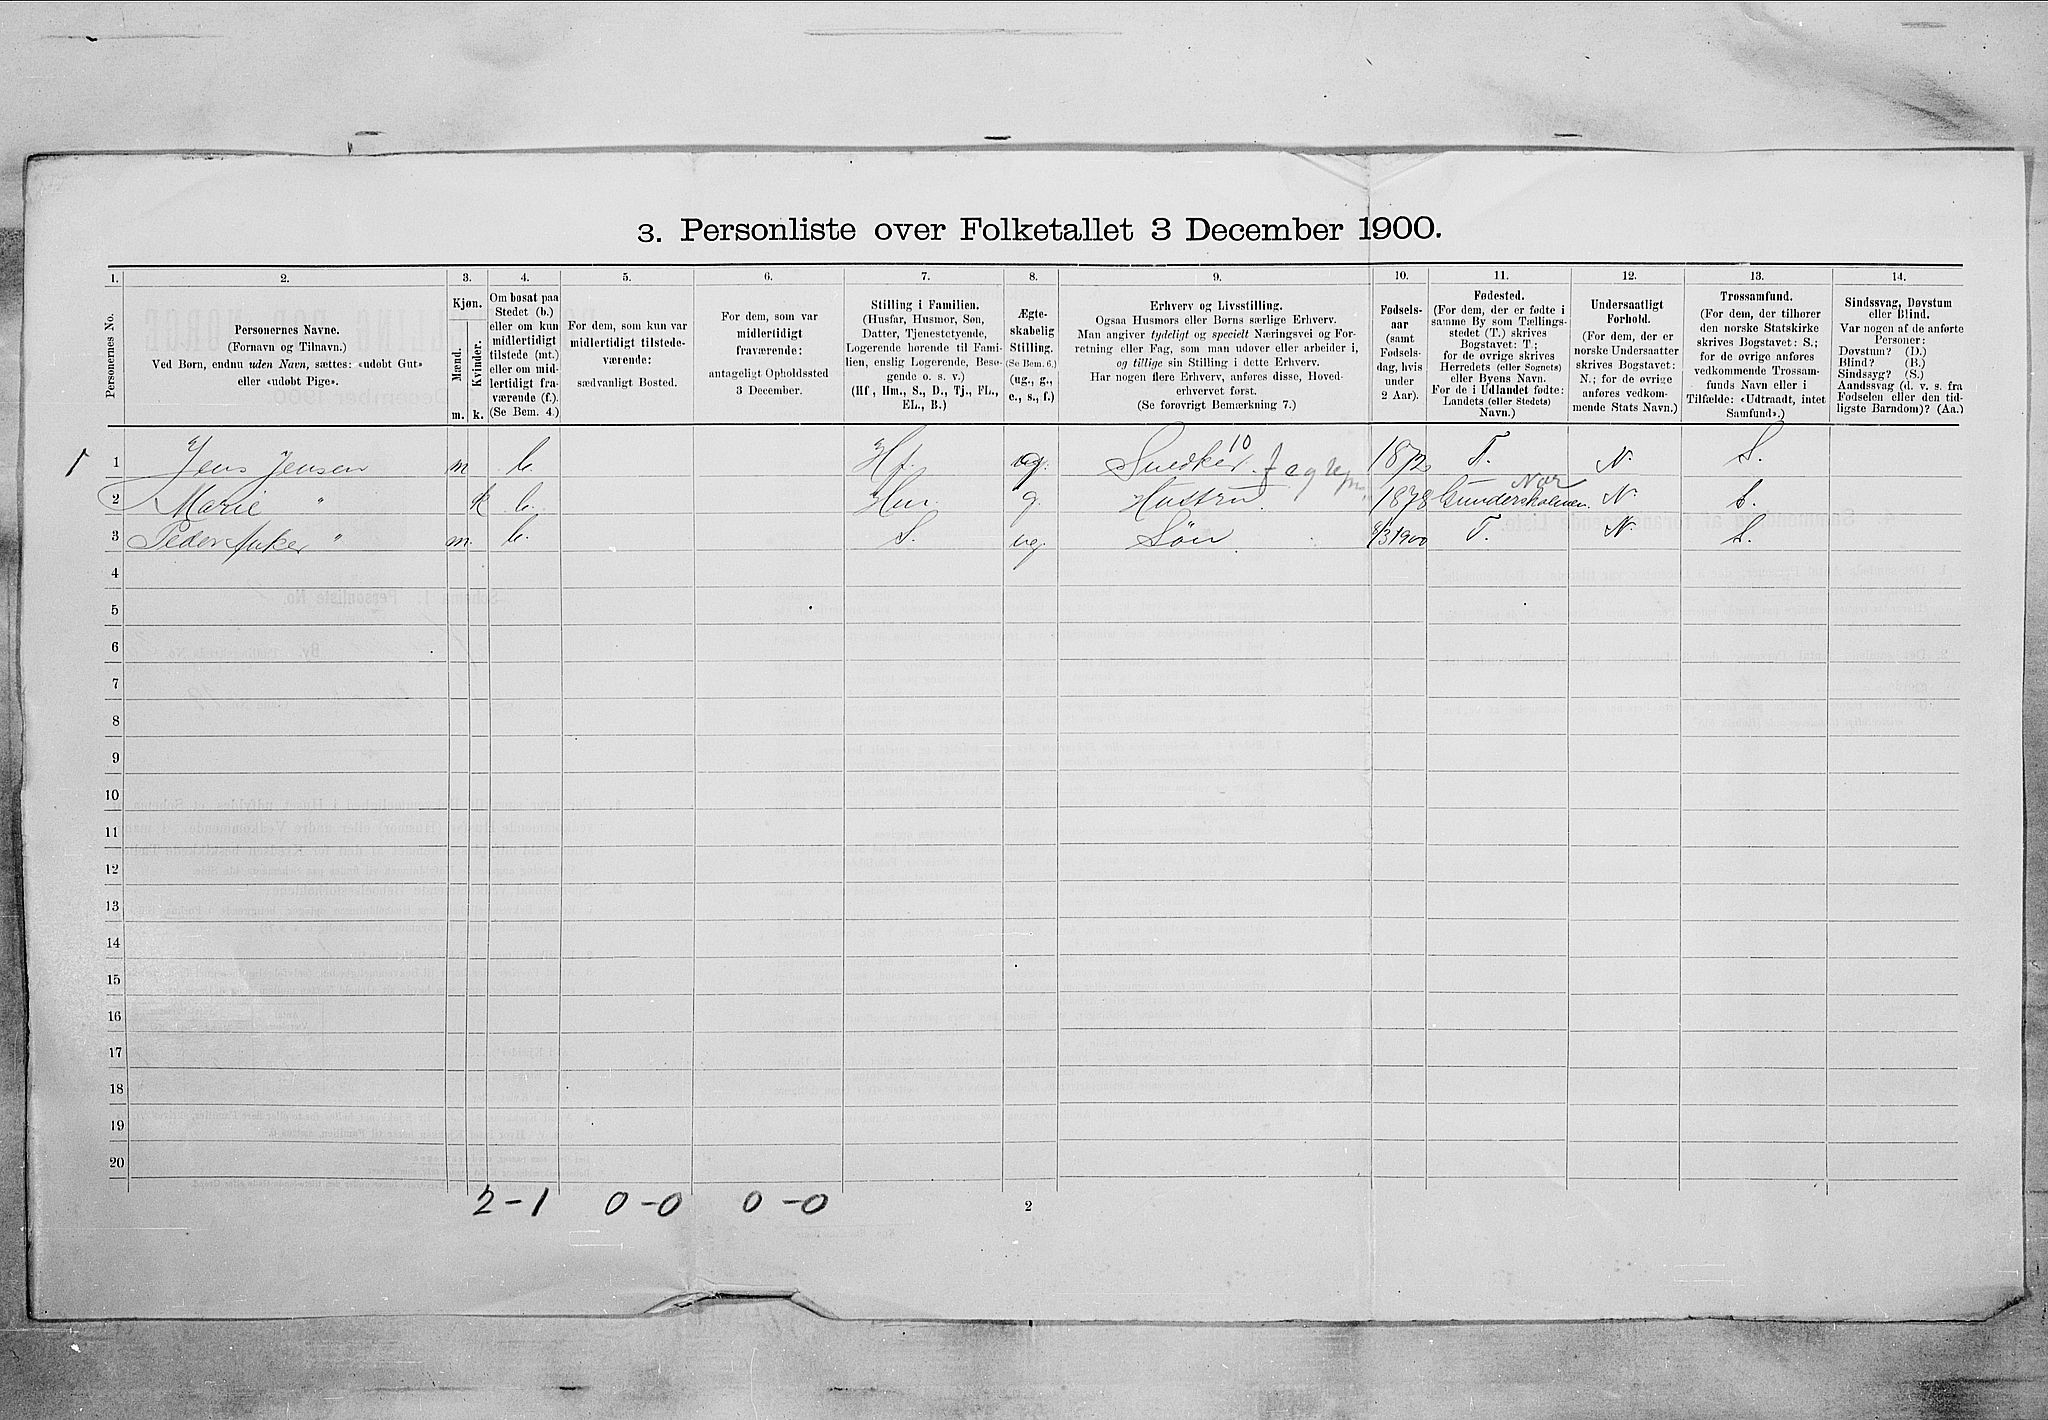 3. Personliste over Folketallet 3 December 1900.
1. 2. 3. 4. 5. 6. 7. 8. 9. 10. 11. 12. 13. 14.
Personernes No.
Personernes Navne.
(Fornavn og Tilnavn.)
Ved Børn, endnu uden Navn, sættes: «udøbt Gut»
eller «udøbt Pige».
Kjøn.
Mænd.
Kvinder.
m. k.
Om bosat paa
Stedet (b.)
eller om kun
midlertidigt
tilstede (mt.)
eller om mid-
lertidigt fra-
værende (f.)
(Se Bem. 4.)
For dem, som kun var
midlertidigt tilstede-
værende:
sædvanligt Bosted.
For dem, som var
midlertidigt
fraværende:
antageligt Opholdssted
3 December.
Stilling i Familien.
(Husfar, Husmor, Søn,
Datter, Tjenestetyende,
Logerende hørende til Fami-
lien, enslig Logerende, Besø-
gende o. s. v.)
(Hf, Hm., S., D., Tj., FL.,
EL., B.)
Ægte-
skabelig
Stilling.
(Se Bem. 6.)
(ug., g.,
e., s., f.)
Erhverv og Livsstilling.
Ogsaa Husmors eller Børns særlige Erhverv.
Man angiver tydeligt og specielt Næringsvei og For-
retning eller Fag, som man udøver eller arbeider i,
og tillige sin Stilling i dette Erhverv.
Har nogen flere Erhverv, anføres disse, Hoved-
erhvervet først.
(Se forøvrigt Bemærkning 7.)
Fødsels-
aar
(samt
Fødsels-
dag, hvis
under
2 Aar).
Fødested.
(For dem, der er fødte i
samme By som Tællings-
stedet (T.) skrives
Bogstavet: T.;
for de øvrige skrives
Herredets (eller Sognets)
eller Byens Navn.
For de i Udlandet fødte:
Landets (eller Stedets)
Navn.)
Undersaatligt
Forhold.
(For dem, der er
norske Undersaatter
skrives Bogstavet:
N.; for de øvrige
anføres vedkom-
mende Stats Navn.)
Trossamfund.
(For dem, der tilhører
den norske Statskirke
skrives Bogstavet: S.;
for de øvrige anføres
vedkommende Trossam-
funds Navn eller i
Tilfælde: «Udtraadt, intet
Samfund».)
Sindssvag, Døvstum
eller Blind.
Var nogen af de anførte
Personer:
Døvstum? (D.)
Blind? (B.)
Sindssyg? (S.)
Aandssvag (d. v. s. fra
Fødselen eller den tid-
ligste Barndom)? (Aa.)
1 1 Jens Jensen m b. Hf. g. Snedker 10 1872 T. N. S.
2 Marie " k b. Hm. g. Hustru 1878 N. S.
3 Peder Anker " m. b. S. ug. Søn 1900 T. N. S.
4
5
6
7
8
9
10
11
12
13
14
15
16
17
18
19
20
2-1 0-0 0-0
2